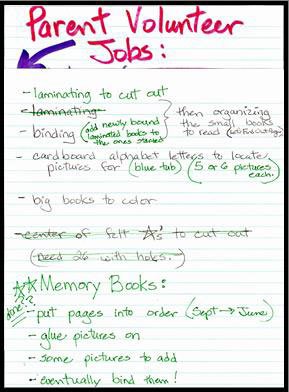 Parent Volunteer
Jobs:
- laminating to cut out
- laminating
- binding (add newly bound laminated books to the ones started)
then organizing the small books to read
- cardboard alphabet letters to locate
pictures for (blue tab) (5 or 6 pictures each.)
- big books to color
- center of felt A's to cut out
(need 26 with hols.)
☆☆ Memory Books:
- put pages into order (Sept → June)
- glue pictures on
- some pictures to add
- eventually bind them!